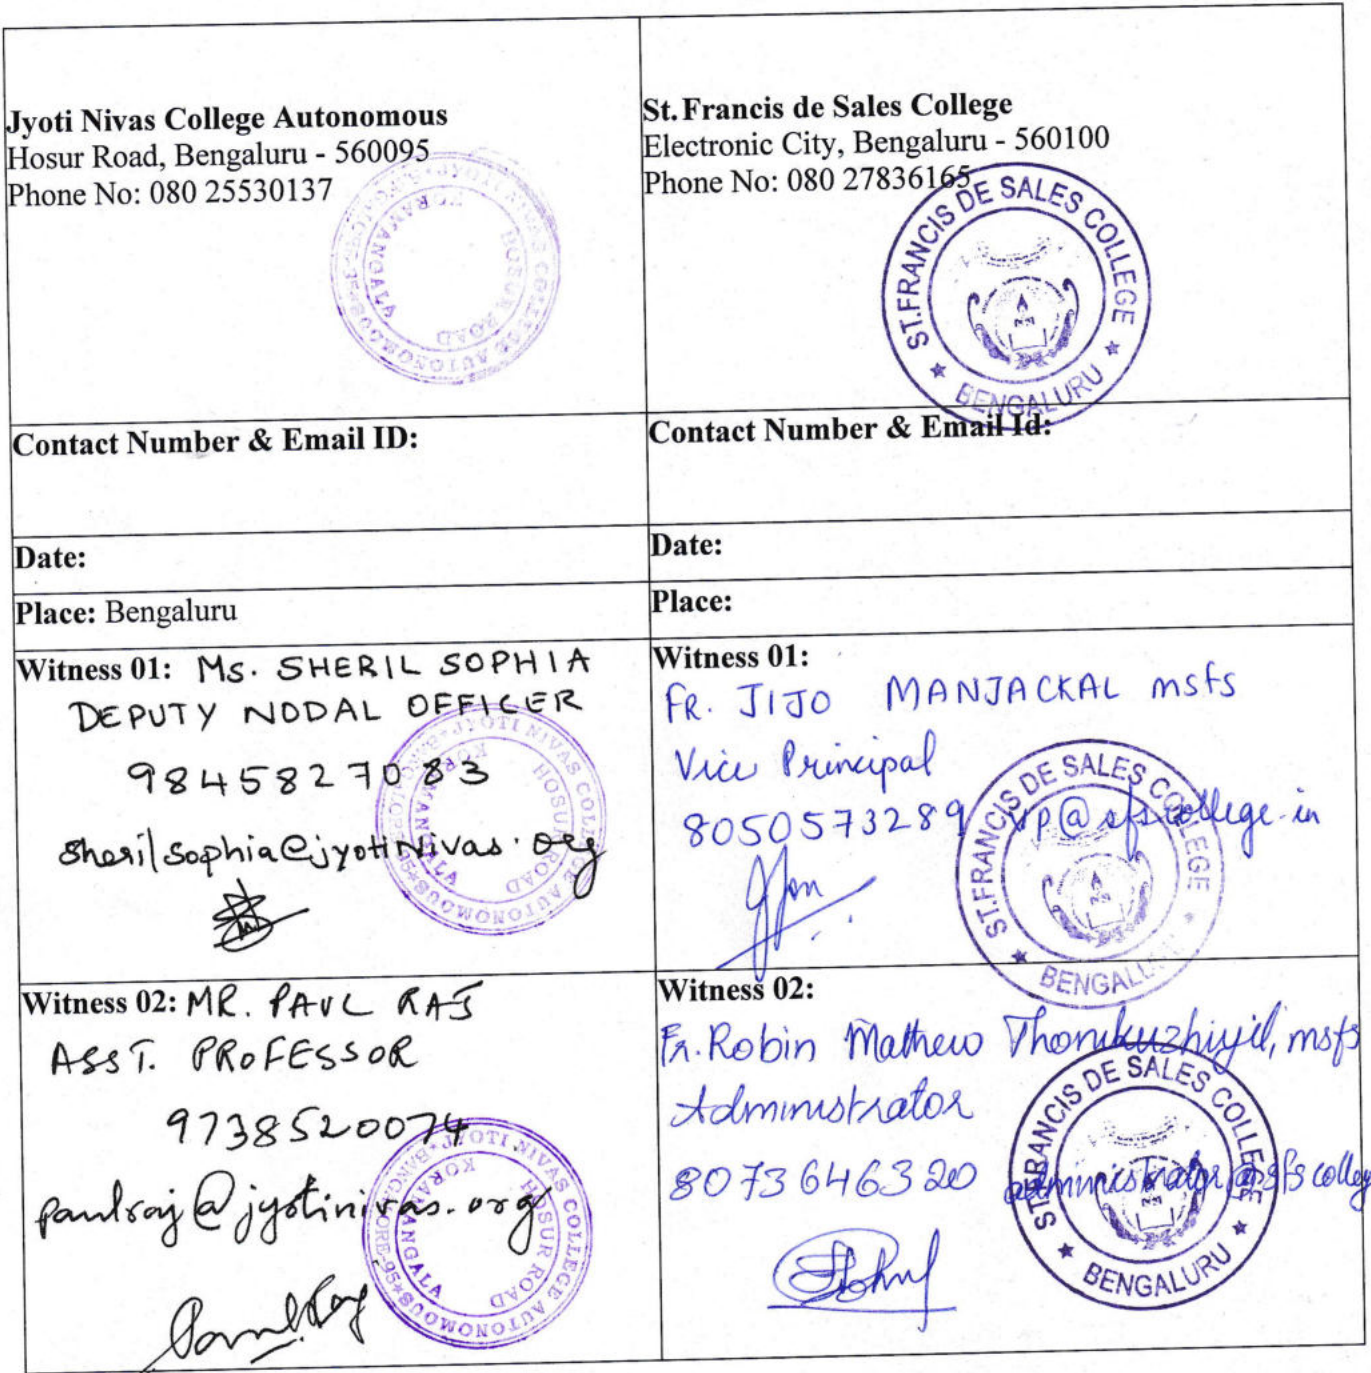 Jyoti Nivas College Autonomous
Hosur Road, Bengaluru - 560095
Phone No: 080 25530137
JYOTI NIVAS COLLEGE AUTONOMOUS
HOSUR ROAD
KORAMANGALA
St. Francis de Sales College
Electronic City, Bengaluru - 560100
Phone No: 080 27836165
ST.FRANCIS DE SALES COLLEGE
★ BENGALURU ★
Contact Number & Email ID:
Contact Number & Email Id:
Date:
Date:
Place: Bengaluru
Place:
Witness 01: Ms. SHERIL SOPHIA
DEPUTY NODAL OFFICER
9845827083
sherilsophia@jyotinivas.org
JYOTI NIVAS COLLEGE AUTONOMOUS
HOSUR ROAD
KORAMANGALA
Witness 01:
FR. JIJO MANJACKAL msfs
Vice Principal
8050573289 vp@sfscollege.in
ST.FRANCIS DE SALES COLLEGE
★ BENGALURU ★
Witness 02: MR. PAUL RAJ
ASST. PROFESSOR
9738520074
paulraj@jyotinivas.org
JYOTI NIVAS COLLEGE AUTONOMOUS BANGALORE-95
HOSUR ROAD
KORAMANGALA
Witness 02:
Fr. Robin Mathew Thonikuzhiyil, msfs
Administrator
8073646320 administrator@sfscolleg
ST.FRANCIS DE SALES COLLEGE
★ BENGALURU ★